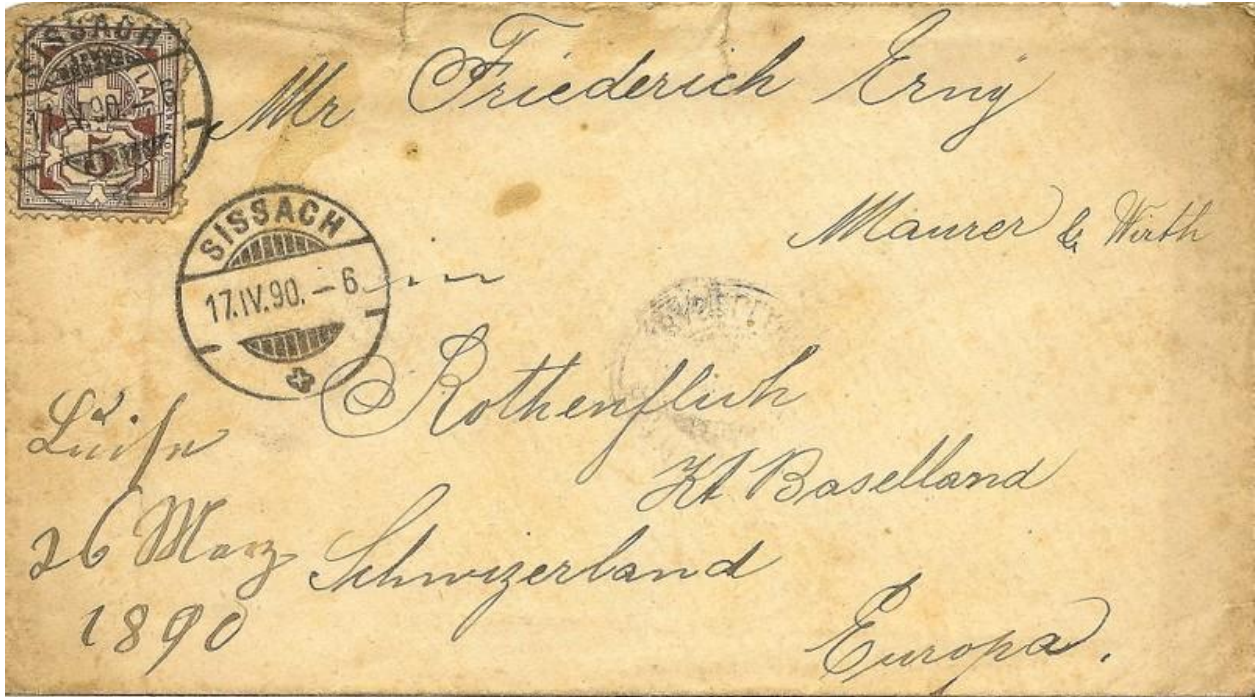 SISSACH
5
Mr Friederich Erny
Maurer & Wirth
SISSACH
17.IV.90.–6
in
Rothenfluh
Kt Baselland
Schwizerland
Europa.
Luise
26 Marz
1890